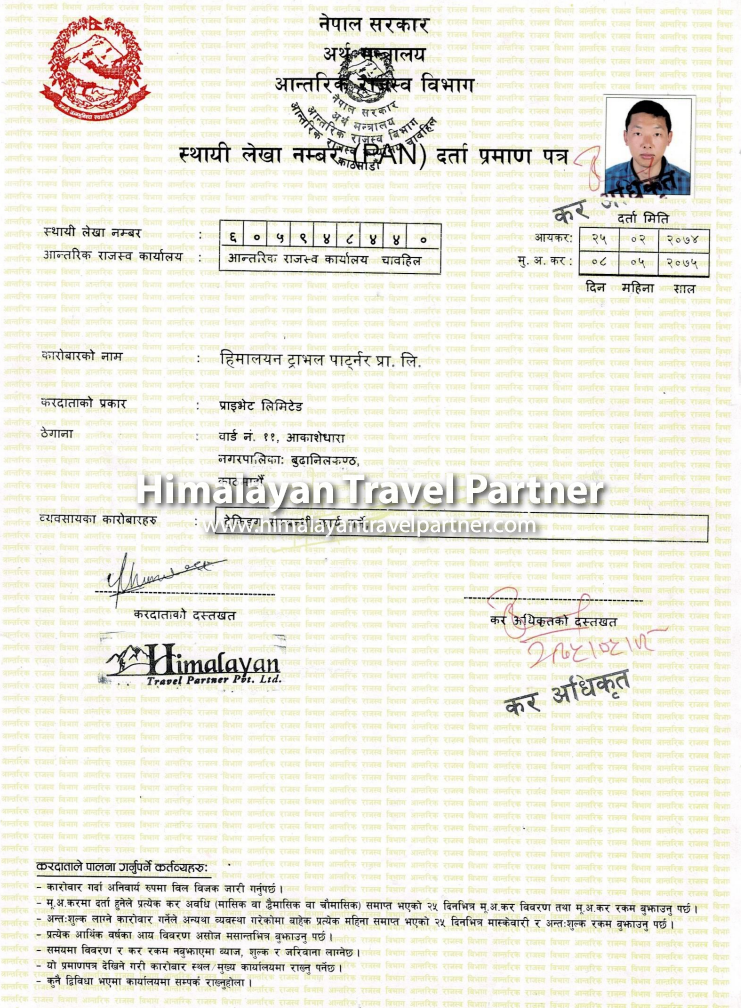 नेपाल सरकार
अर्थ मन्त्रालय
आन्तरिक राजस्व विभाग
नेपाल सरकार
अर्थ मन्त्रालय
आन्तरिक राजस्व विभाग
स्थायी लेखा नम्बर (PAN) दर्ता प्रमाण पत्र
कर अधिकृत
स्थायी लेखा नम्बर : ६ ० ५ ९ ४ ८ ४ ४ ०
आन्तरिक राजस्व कार्यालय : आन्तरिक राजस्व कार्यालय चावहिल
दर्ता मिति
आयकर: २५ ०२ २०७४
मु. अ. कर : ०८ ०५ २०७५
दिन महिना साल
कारोबारको नाम : हिमालयन ट्राभल पार्ट्नर प्रा. लि.
करदाताको प्रकार : प्राइभेट लिमिटेड
ठेगाना : वार्ड नं. ११, आकाशेधारा
नगरपालिका: बुढानिलकण्ठ,
Himalayan Travel Partner
www.himalayantravelpartner.com
व्यवसायका कारोबारहरु :
करदाताको दस्तखत
कर अधिकृतको दस्तखत
Himalayan
Travel Partner Pvt. Ltd.
कर अधिकृत
करदाताले पालना गर्नुपर्ने कर्तव्यहरु:
- कारोवार गर्दा अनिवार्य रुपमा विल विजक जारी गर्नुपर्छ ।
- मू.अ.करमा दर्ता हुनेले प्रत्येक कर अवधि (मासिक वा द्वैमासिक वा चौमासिक) समाप्त भएको २५ दिनभित्र मू.अ.कर विवरण तथा मू.अ.कर रकम बुझाउनु पर्छ ।
- अन्तःशुल्क लाग्ने कारोवार गर्नेले अन्यथा व्यवस्था गरेकोमा बाहेक प्रत्येक महिना समाप्त भएको २५ दिनभित्र मास्केवारी र अन्तःशुल्क रकम बुझाउनु पर्छ ।
- प्रत्येक आर्थिक वर्षका आय विवरण असोज मसान्तभित्र बुझाउनु पर्छ ।
- समयमा विवरण र कर रकम नबुझाएमा व्याज, शुल्क र जरिवाना लाग्नेछ ।
- यो प्रमाणपत्र देखिने गरी कारोवार स्थल/मुख्य कार्यालयमा राख्नु पर्नेछ ।
- कुनै द्विविधा भएमा कार्यालयमा सम्पर्क राख्नुहोला ।